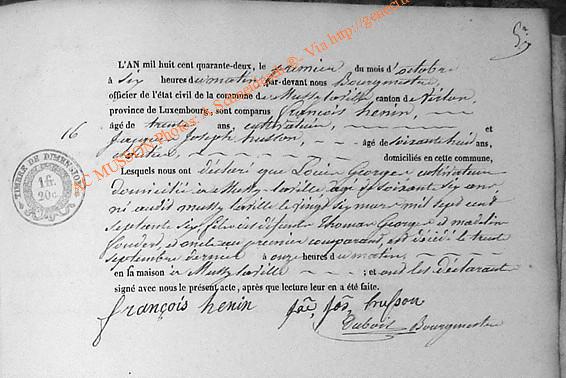 5r
L'AN mil huit cent quarante-deux, le premier du mois d'octobre
à six heures du matin par-devant nous Bourgmestre
officier de l'état civil de la commune de Mussy la ville canton de Virton,
province de Luxembourg, sont comparus françois henin,
16 âgé de trente ans, cultivateur, et
Jacques Joseph husson, âgé de soixante huit ans,
domiciliés en cette commune,
Lesquels nous ont déclaré que Louis George cultivateur
domicilié à Mussy la ville âgé de soixante six ans,
né audit mussy la ville le vingt six mars mil sept cent
septante six, fils des défunts Thomas George et madelin
et oncle au premier comparant, est décédé le trente
septembre dernier à onze heures du matin,
en sa maison à Mussy la ville ; et ont les déclarant
signé avec nous le présent acte, après que lecture leur en a été faite.
françois henin jos husson
Bourgmestre
TIMBRE DE DIMENSION
1 fr.
20 c.
MUSSON Photos: A. Schneiders ®- Via http://genech